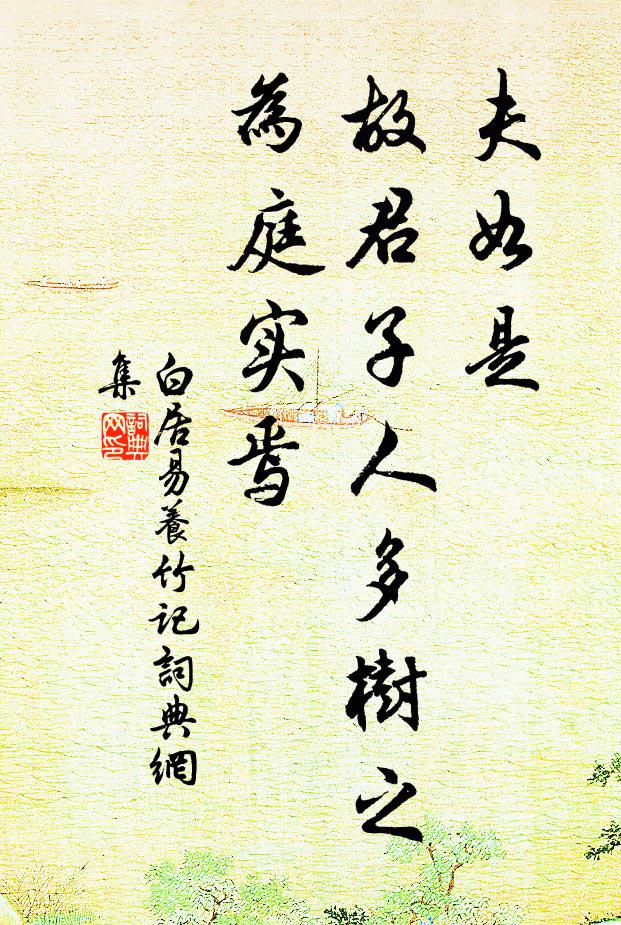 夫如是
故君子人多樹之
為庭实焉
白居易養竹記詞典網
集
詞典
网印